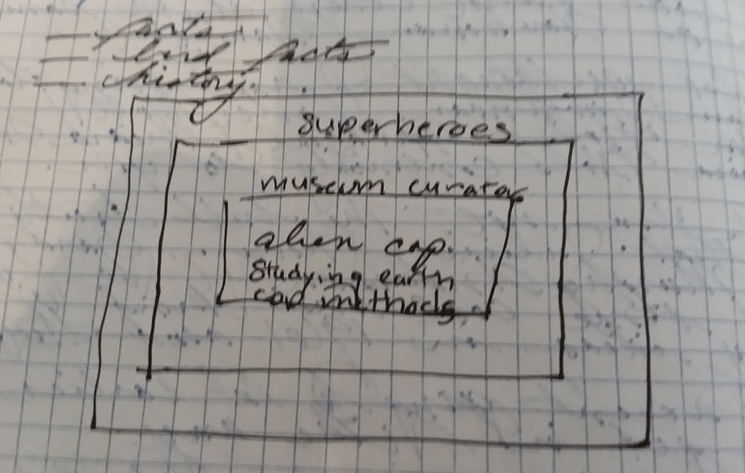 facts
facts
history
superheroes
museum curator
alien cap.
Studying earth
cap methods